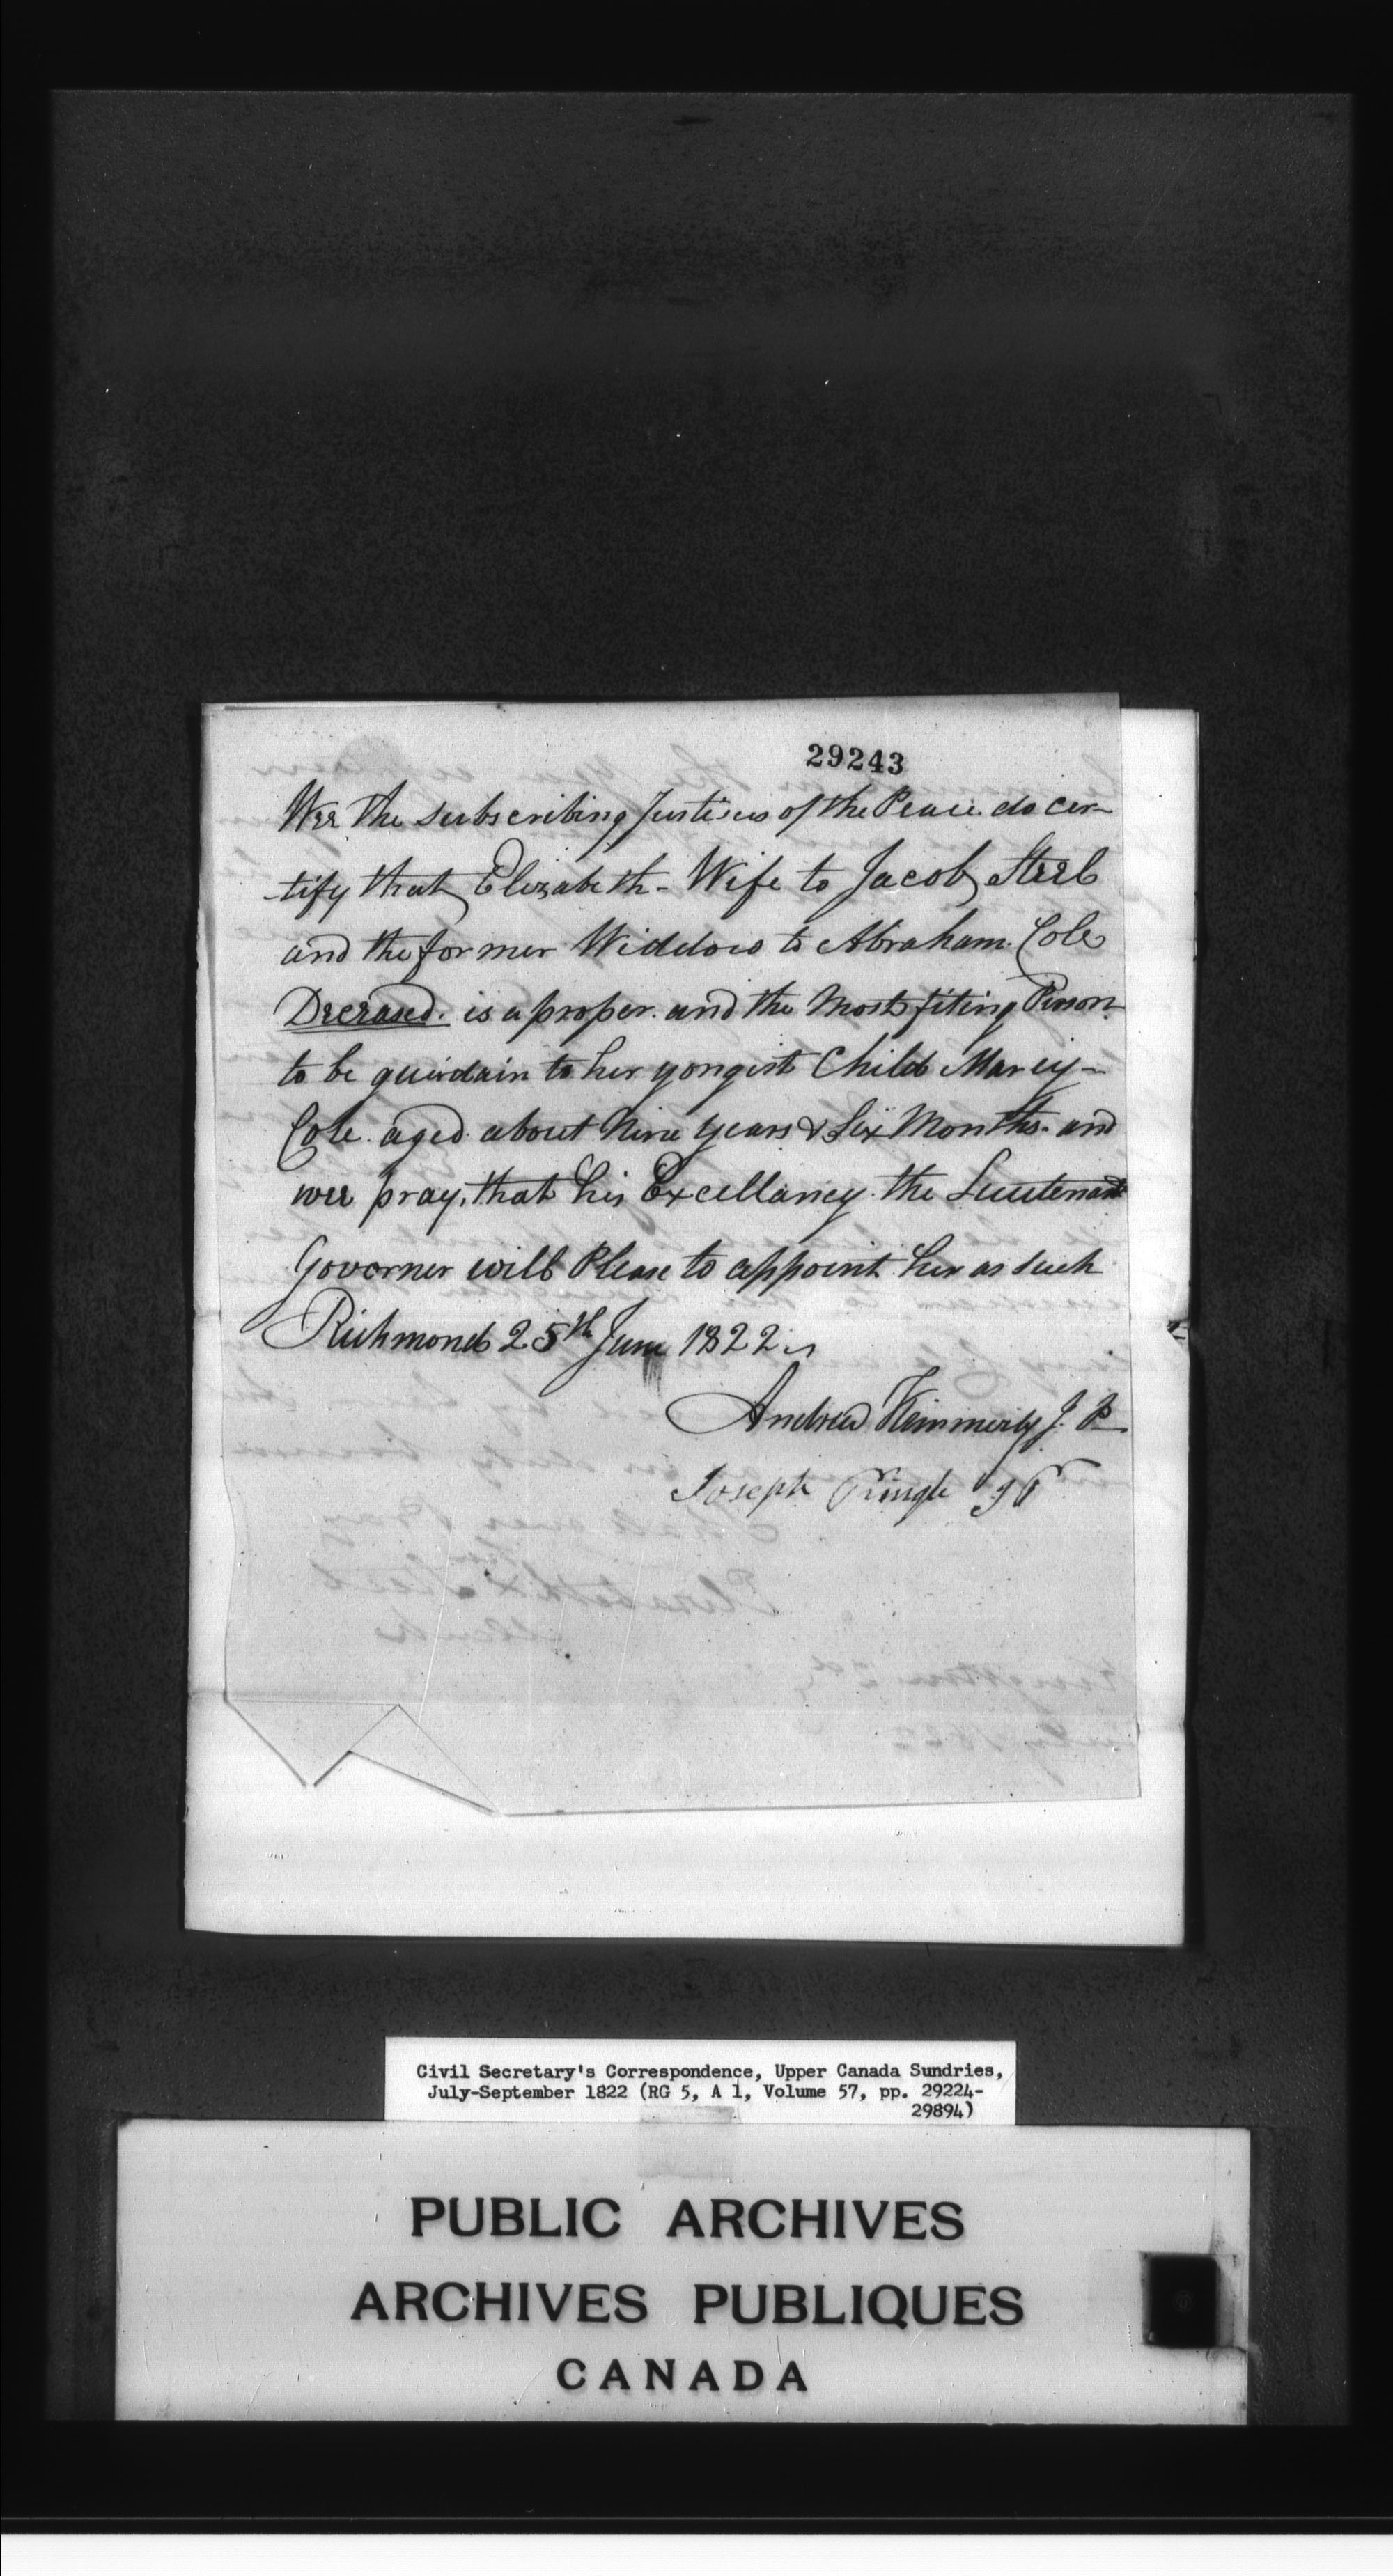 29243
Wee the subscribing Justices of the Peace do cer-
tify that Elizabeth - Wife to Jacob Steel
and the former Widdow to Abraham Cole
Deceased. is a proper. and the Most fiting Person
to be guirdain to her yongist Child Marey-
Cole. aged about Nine years & Six Months. and
wee pray, that his Excellancy the Lieutenant
Governer will Please to appoint her as such
Richmond 25th June 1822
Andrew Kimmerly J. P
Joseph Pringle J P
Civil Secretary's Correspondence, Upper Canada Sundries,
July-September 1822 (RG 5, A 1, Volume 57, pp. 29224-
29894)
PUBLIC ARCHIVES
ARCHIVES PUBLIQUES
CANADA